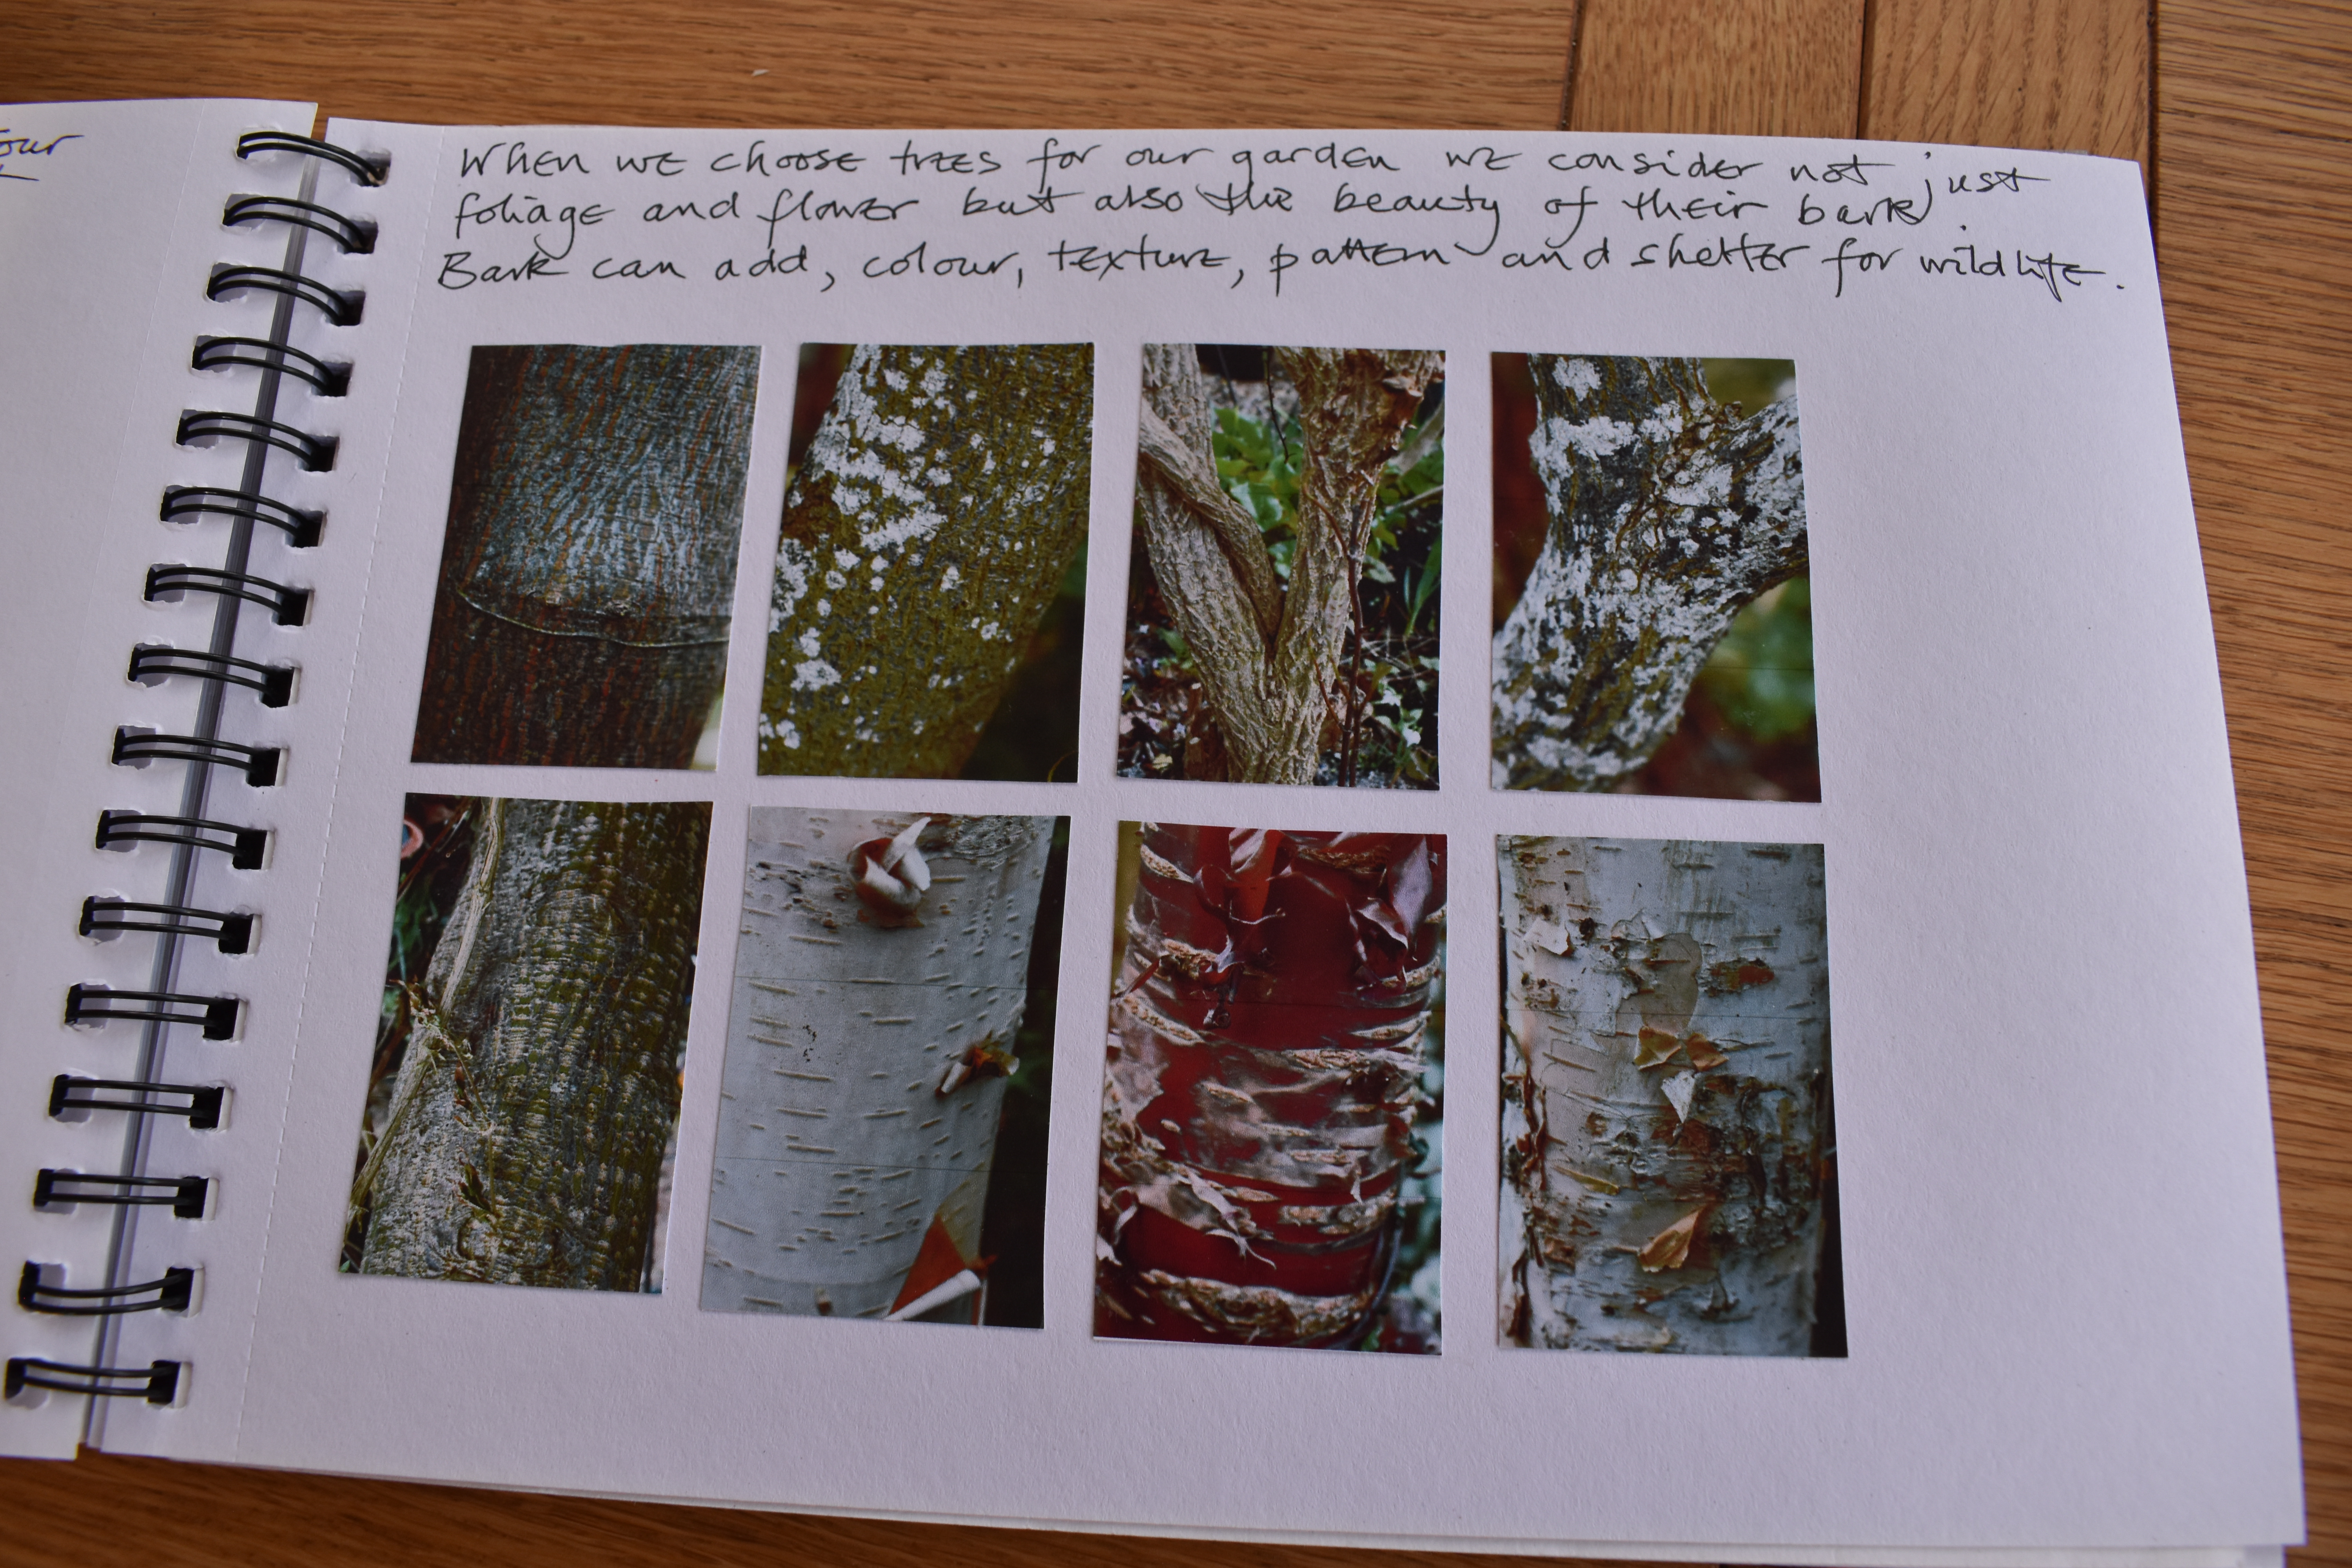 our
When we choose trees for our garden we consider not just
foliage and flower but also the beauty of their bark.
Bark can add, colour, texture, pattern and shelter for wildlife.